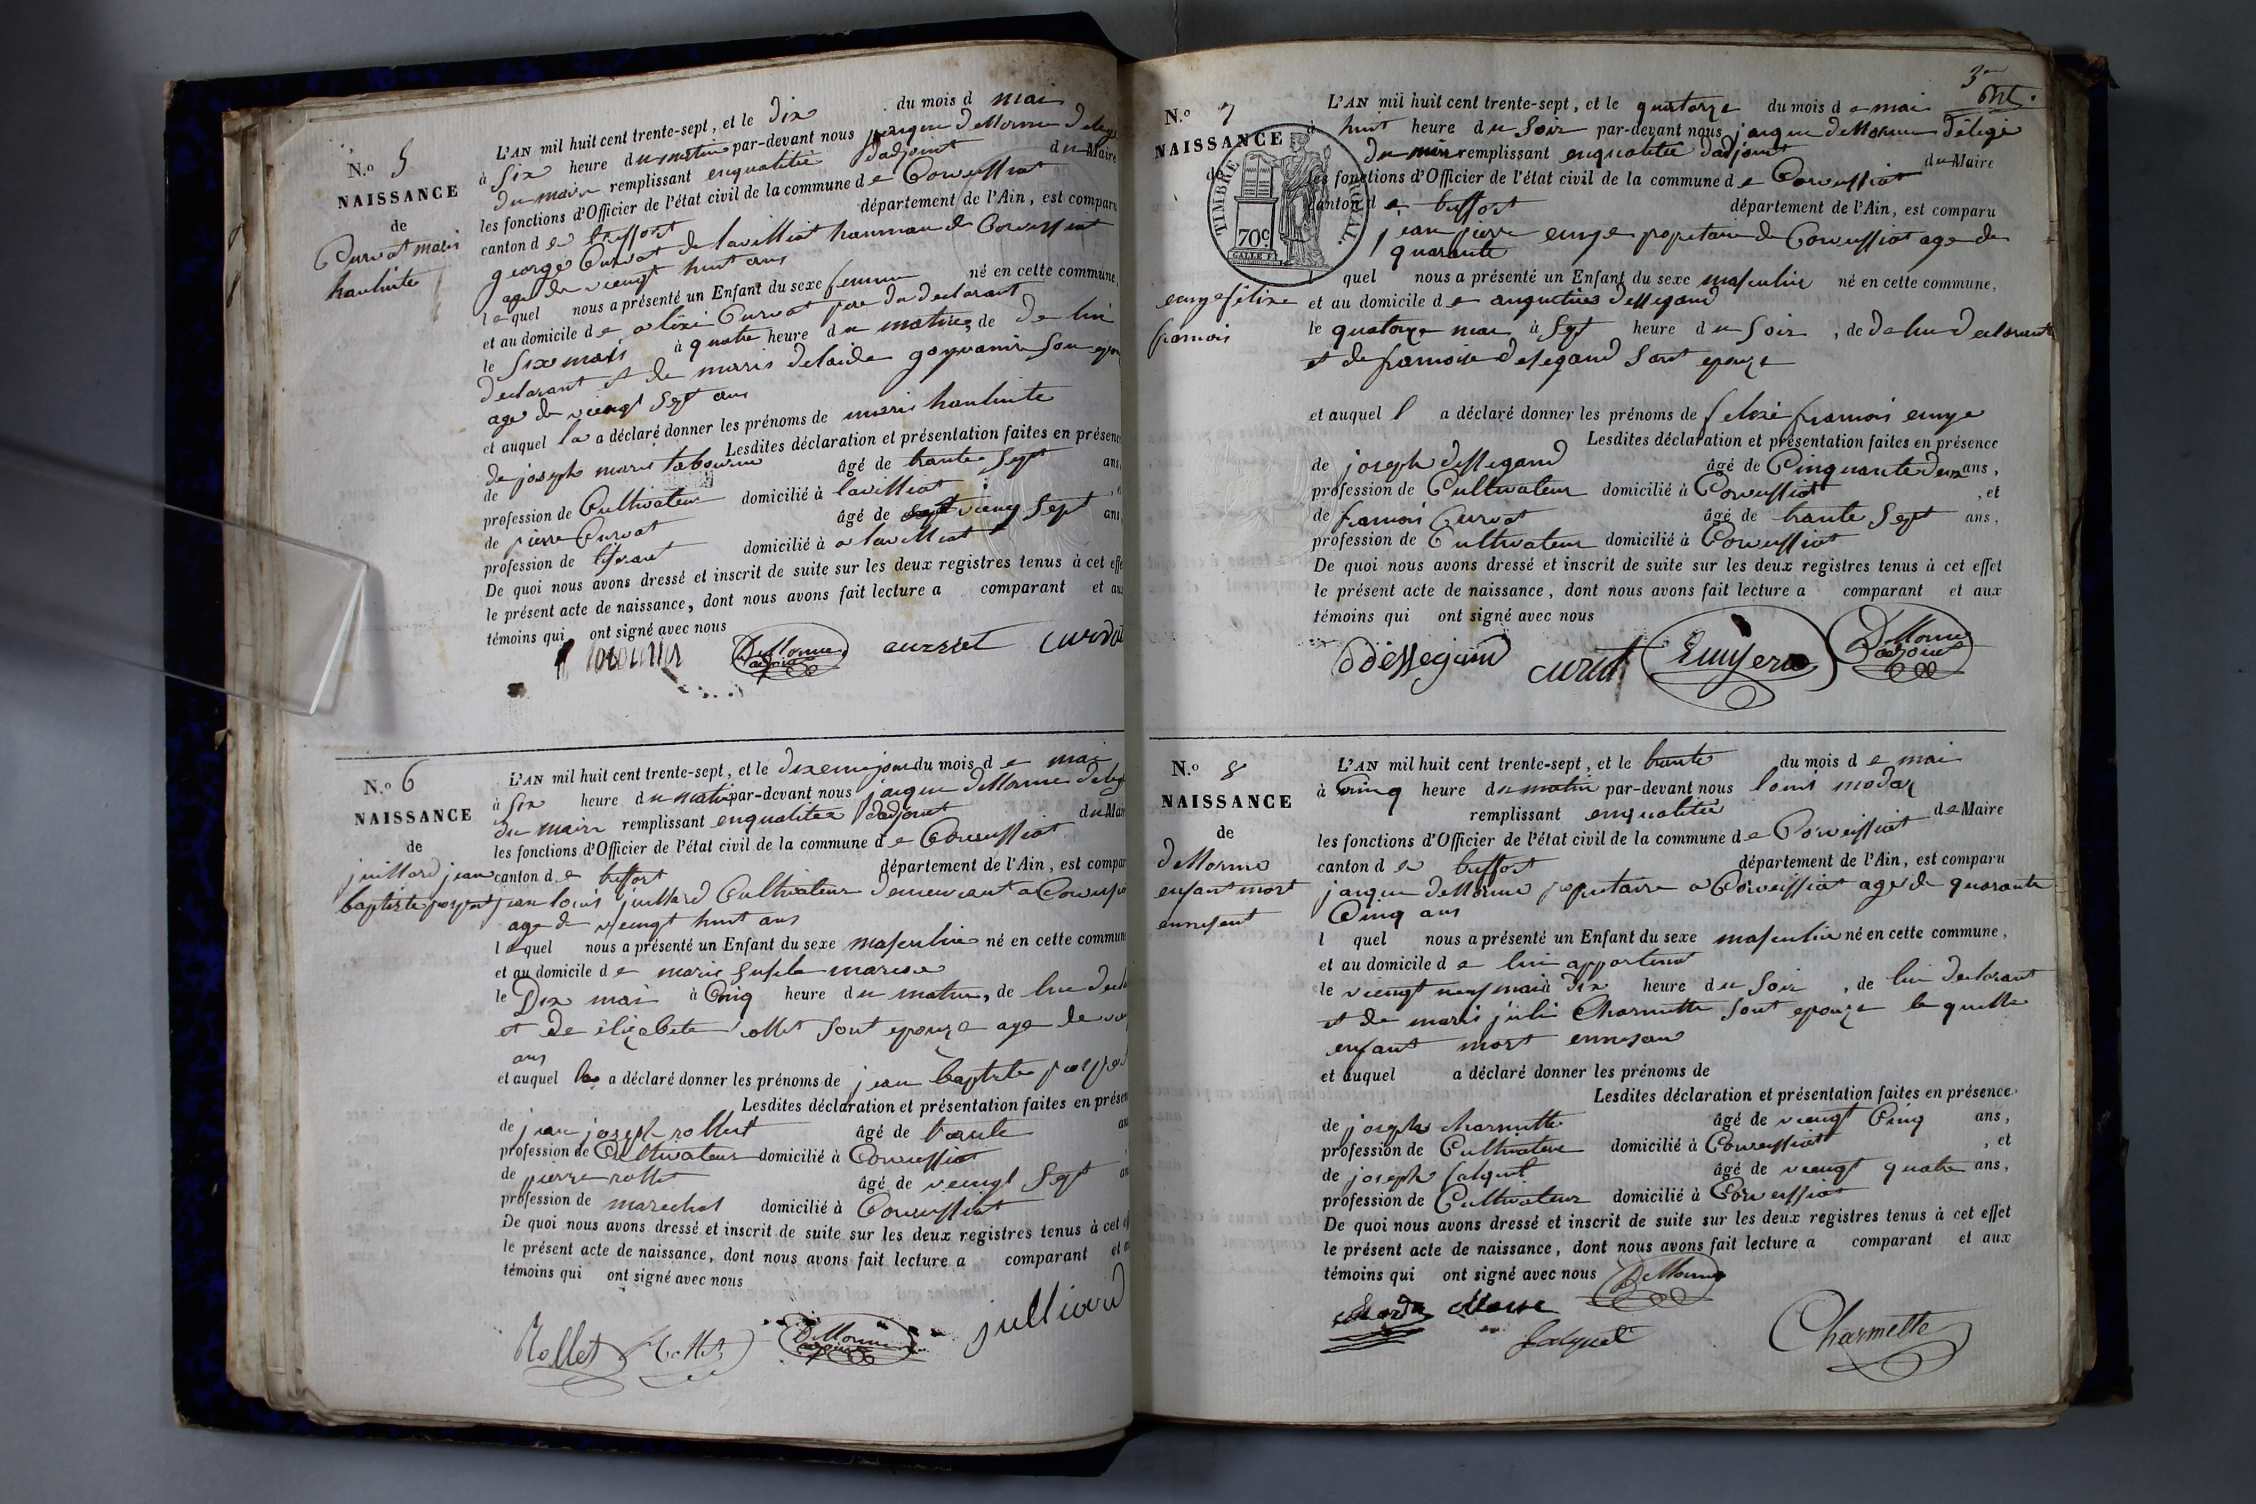 N.o 5
NAISSANCE
de
Curvat marie
hanliente
L'AN mil huit cent trente-sept, et le dix du mois d mai
à Six heure du matin par-devant nous jacque dellorme delegé
du maire remplissant enqualitée dadjoint du Maire
les fonctions d'Officier de l'état civil de la commune de Corveissiat
canton de treffort département de l'Ain, est comparu
george Curvat de lavilliat hammau de Corveissiat
age de vieingt huit ans
lequel nous a présenté un Enfant du sexe femme né en cette commune,
et au domicile de alexi Curvat pere du declarant
le Six mais à quatre heure du matin, de de lui
declarant et de marie delaide son epou
age de vieingt Sept ans
et auquel la a déclaré donner les prénoms de marie hanliente
Lesdites déclaration et présentation faites en présence
de joseph marie tabourin âgé de trante Sept ans,
profession de Cultivateur domicilié à lavilliat
de pierre Curvat âgé de vieing Sept ans,
profession de tiserant domicilié à a lavilliat
De quoi nous avons dressé et inscrit de suite sur les deux registres tenus à cet effe
le présent acte de naissance, dont nous avons fait lecture a comparant et aux
témoins qui ont signé avec nous
Dellorme
adjoint
curvat
N.o 6
NAISSANCE
de
juillard jean
baptiste
L'AN mil huit cent trente-sept, et le dixeme jour du mois de mai
à Six heure du matin par-devant nous jacque dellorme delegé
du maire remplissant enqualitée dadjoint du Maire
les fonctions d'Officier de l'état civil de la commune de Corveissiat
canton de treffort département de l'Ain, est comparu
jean louis juillard Cultivateur demeurant a Corveissiat
age de vieingt huit ans
lequel nous a présenté un Enfant du sexe masculin né en cette commune
et au domicile de marie
le Dix mai à Cinq heure du matin, de lui decla
et de elizabete rollet sont epouze age de
ans
et auquel a déclaré donner les prénoms de jean baptiste
Lesdites déclaration et présentation faites en présen
de jean joseph rollet âgé de trente
profession de Cultivateur domicilié à Corveissiat
de pierre rollet âgé de vieingt Sept
profession de marechal domicilié à Corveissiat
De quoi nous avons dressé et inscrit de suite sur les deux registres tenus à cet
le présent acte de naissance, dont nous avons fait lecture a comparant et
témoins qui ont signé avec nous
Rollet Rollet Dellorme adjoint julliard
3e
N.o 7
NAISSANCE
de
TIMBRE ROYAL.
70c
emyefelixe
francois
L'AN mil huit cent trente-sept, et le quatorze du mois de mai
à huit heure du Soir par-devant nous jacque dellorme délegé
du maire remplissant enqualitée dadjoint du Maire
les fonctions d'Officier de l'état civil de la commune de Corveissiat
canton de treffort département de l'Ain, est comparu
jean pierre emye propietaire de Corveissiat age de
quarante
l quel nous a présenté un Enfant du sexe masculin né en cette commune,
et au domicile de augustins dessegand
le quatorze mai à Sept heure du Soir, de de lui declarant
et de francoise desegand sont epouze
et auquel l a déclaré donner les prénoms de felixe francois emye
Lesdites déclaration et présentation faites en présence
de joseph dessegand âgé de Cinquante deux ans,
profession de Cultivateur domicilié à Corveissiat, et
de francois Curvat âgé de trante Sept ans,
profession de Cultivateur domicilié à Corveissiat
De quoi nous avons dressé et inscrit de suite sur les deux registres tenus à cet effet
le présent acte de naissance, dont nous avons fait lecture a comparant et aux
témoins qui ont signé avec nous
dessegand Dellorme adjoint
N.o 8
NAISSANCE
de
dellorme
enfant mort
ennesent
L'AN mil huit cent trente-sept, et le trante du mois de mai
à Cinq heure du matin par-devant nous louis modas
remplissant enqualitée de Maire
les fonctions d'Officier de l'état civil de la commune de Corveissiat
canton de treffort département de l'Ain, est comparu
jacque dellorme propietaire a Corveissiat age de quarante
Cinq ans
l quel nous a présenté un Enfant du sexe masculin né en cette commune,
et au domicile de lui appartenat
le vieingt neuf mai à dix heure du Soir, de lui declarant
et de marie julie Charmette sont epouze le quelle
enfant mort ennesan
et auquel a déclaré donner les prénoms de
Lesdites déclaration et présentation faites en présence
de joseph charmette âgé de vieingt Cinq ans,
profession de Cultivateur domicilié à Corveissiat, et
de joseph falquet âgé de vieingt quatre ans,
profession de Cultivateur domicilié à Corveissiat
De quoi nous avons dressé et inscrit de suite sur les deux registres tenus à cet effet
le présent acte de naissance, dont nous avons fait lecture a comparant et aux
témoins qui ont signé avec nous
Dellorme
Modas Maire
falquet Charmette